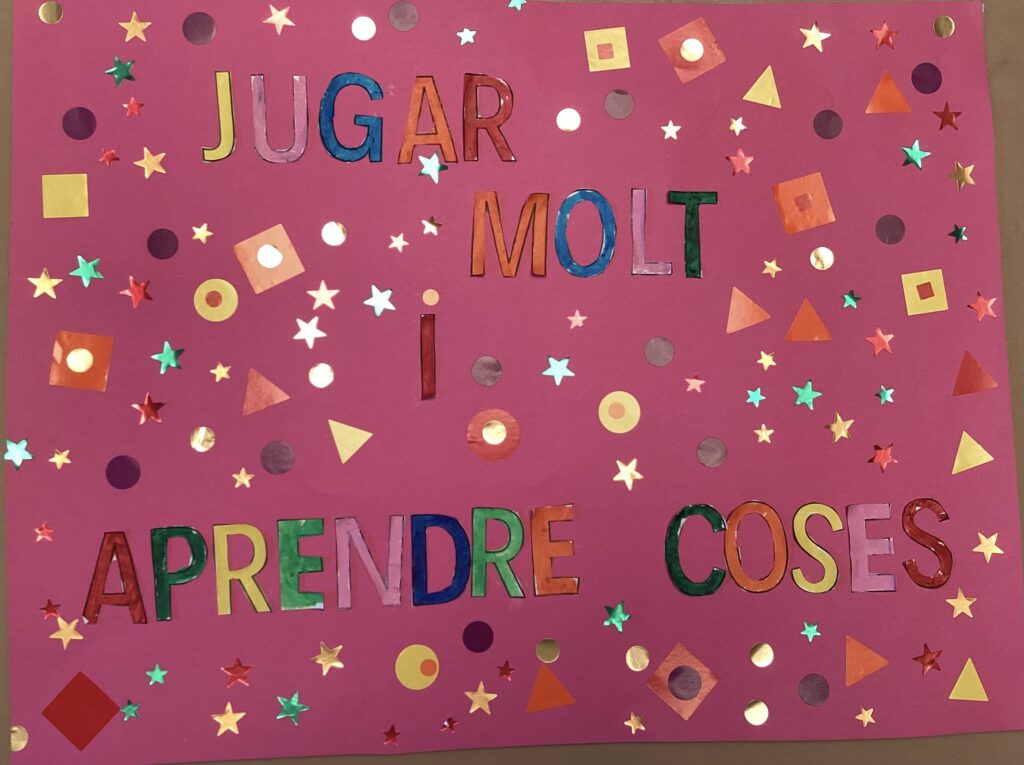 JUGAR
MOLT
i
APRENDRE COSES